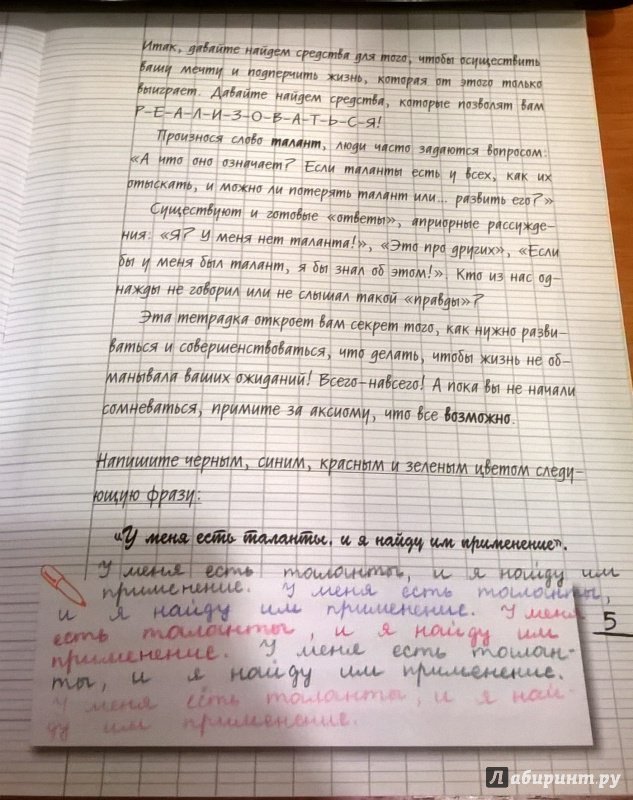 Итак, давайте найдем средства для того, чтобы осуществить
вашу мечту и подперчить жизнь, которая от этого только
выиграет. Давайте найдем средства, которые позволят вам
Р-Е-А-Л-И-З-О-В-А-Т-Ь-С-Я!
Произнося слово талант, люди часто задаются вопросом:
«А что оно означает? Если таланты есть у всех, как их
отыскать, и можно ли потерять талант или... развить его?»
Существуют и готовые «ответы», априорные рассужде-
ния: «Я? У меня нет таланта!», «Это про других», «Если
бы у меня был талант, я бы знал об этом!». Кто из нас од-
нажды не говорил или не слышал такой «правды»?
Эта тетрадка откроет вам секрет того, как нужно разви-
ваться и совершенствоваться, что делать, чтобы жизнь не об-
манывала ваших ожиданий! Всего-навсего! А пока вы не начали
сомневаться, примите за аксиому, что все возможно.
Напишите черным, синим, красным и зеленым цветом следу-
ющую фразу:
«У меня есть таланты, и я найду им применение».
У меня есть таланты, и я найду им
применение. У меня есть таланты,
и я найду им применение. У меня
есть таланты, и я найду им
применение. У меня есть талан-
ты, и я найду им применение.
У меня есть таланты, и я най-
ду им применение.
5
Лабиринт.ру